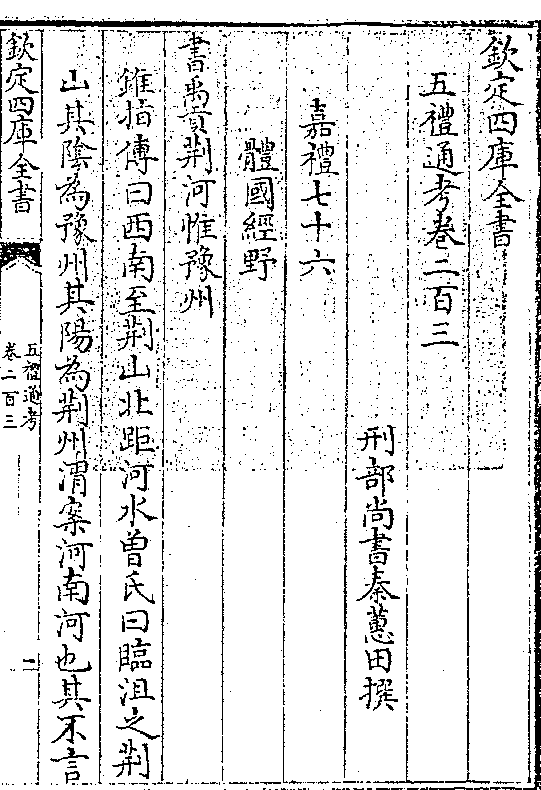 欽定四庫全書
五禮通考卷二百三
刑部尚書秦蕙田撰
嘉禮七十六
體國經野
書禹貢荆河惟豫州
錐指傳曰西南至荆山北距河水曽氏曰臨沮之荆
山其陰為豫州其陽為荆州渭案河南河也其不言
欽定四庫全書
五禮通考
卷二百三
一